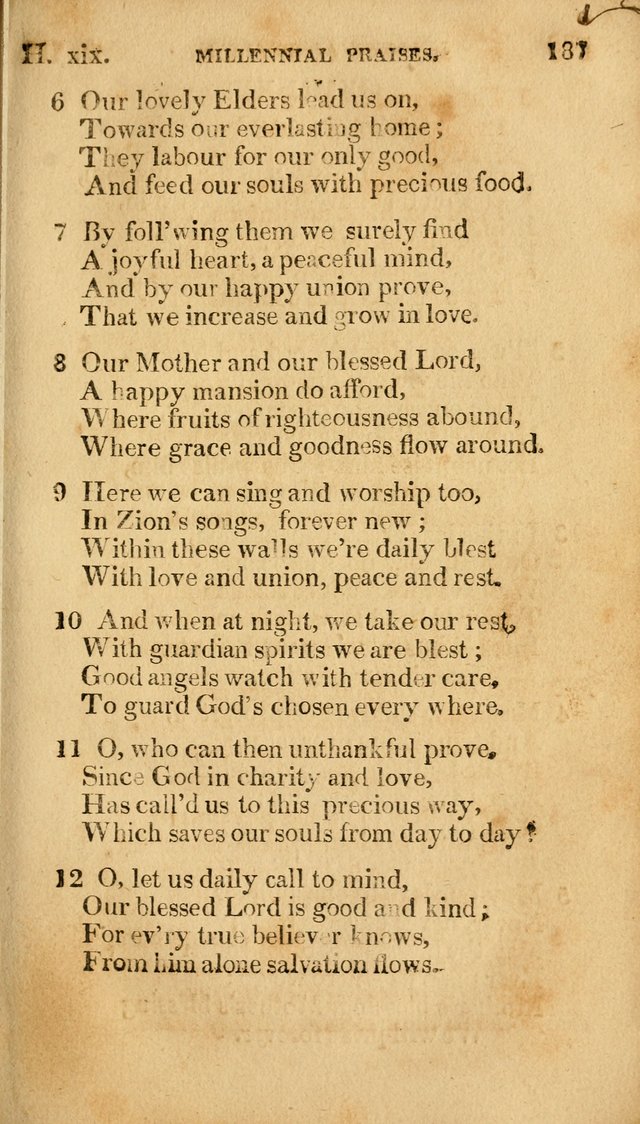 H. xix. MILLENNIAL PRAISES. 137
6 Our lovely Elders lead us on,
Towards our everlasting home;
They labour for our only good,
And feed our souls with precious food.
7 By foll'wing them we surely find
A joyful heart, a peaceful mind,
And by our happy union prove,
That we increase and grow in love.
8 Our Mother and our blessed Lord,
A happy mansion do afford,
Where fruits of righteousness abound,
Where grace and goodness flow around.
9 Here we can sing and worship too,
In Zion's songs, forever new;
Within these walls we're daily blest
With love and union, peace and rest.
10 And when at night, we take our rest,
With guardian spirits we are blest;
Good angels watch with tender care,
To guard God's chosen every where.
11 O, who can then unthankful prove,
Since God in charity and love,
Has call'd us to this precious way,
Which saves our souls from day to day?
12 O, let us daily call to mind,
Our blessed Lord is good and kind;
For ev'ry true believer knows,
From him alone salvation flows.